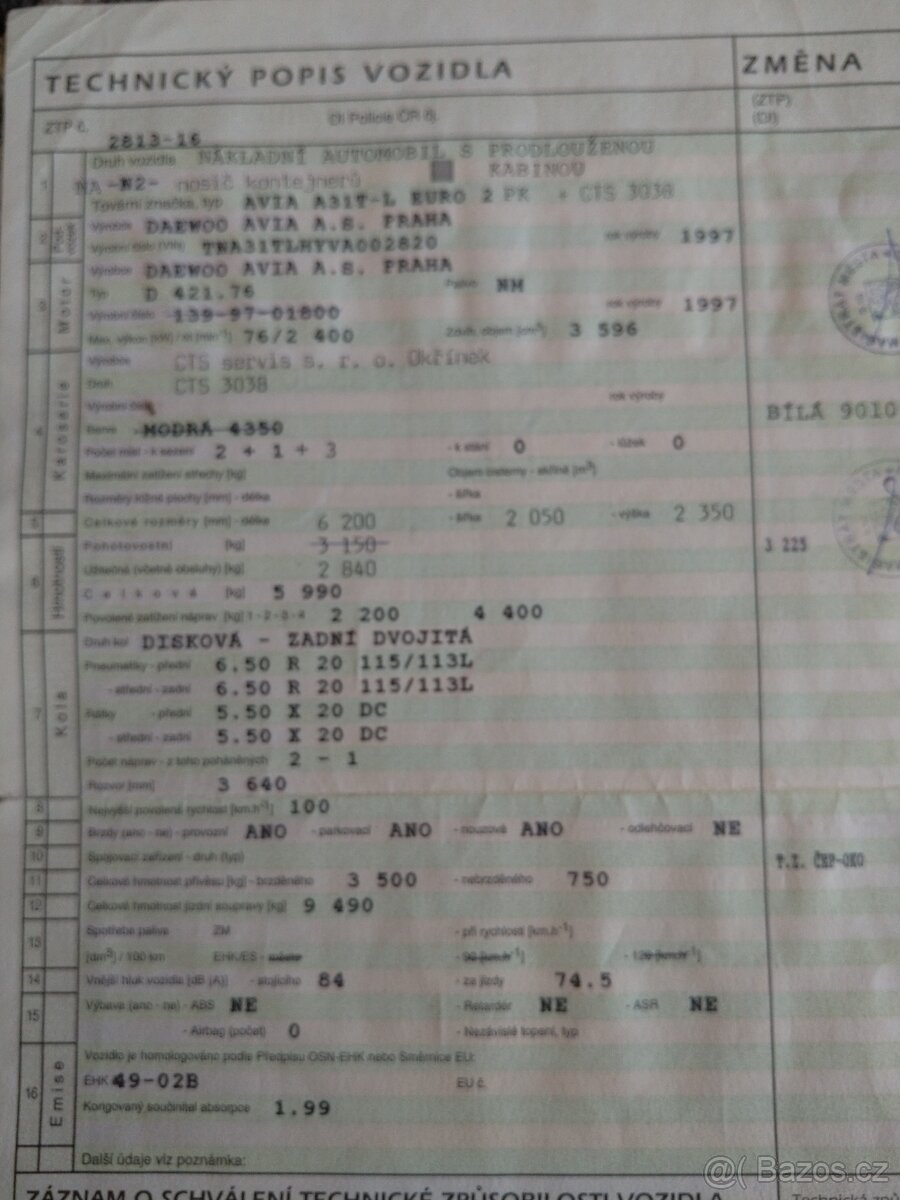 TECHNICKÝ POPIS VOZIDLA
ZMĚNA
ZTP č. 2813-16 DI Policie ČR č.
(ZTP)
(DI)
1 Druh vozidla NÁKLADNÍ AUTOMOBIL S PRODLOUŽENOU
KABINOU
NA -N2- nosič kontejnerů
Tovární značka, typ AVIA A31T-L EURO 2 PK + CTS 3038
Výrobce DAEWOO AVIA A.S. PRAHA
Výrobní číslo (VIN) TNA31TLHYVA002820 rok výroby 1997
3 Motor
Výrobce DAEWOO AVIA A.S. PRAHA
Typ D 421.76 Palivo NM
Výrobní číslo 139-97-01800 rok výroby 1997
Max. výkon [kW] / ot.[min-1] 76/2 400 Zdvih. objem [cm3] 3 596
4 Karoserie
Výrobce CTS servis s. r. o. Okřínek
Druh CTS 3038
Výrobní číslo rok výroby
Barva MODRÁ 4350 BÍLÁ 9010
Počet míst - k sezení 2 + 1 + 3 - k stání 0 - lůžek 0
Maximální zatížení střechy [kg] Objem cisterny - skříně [m3]
Rozměry ložné plochy [mm] - délka - šířka
5 Celkové rozměry [mm] - délka 6 200 - šířka 2 050 - výška 2 350
6 Hmotnosti
Pohotovostní [kg] 3 150 3 225
Užitečná (včetně obsluhy) [kg] 2 840
Celková [kg] 5 990
Povolené zatížení náprav [kg] 1 - 2 - 3 - 4 2 200 4 400
7 Kola
Druh kol DISKOVÁ - ZADNÍ DVOJITÁ
Pneumatiky - přední 6.50 R 20 115/113L
- střední - zadní 6.50 R 20 115/113L
Ráfky - přední 5.50 X 20 DC
- střední - zadní 5.50 X 20 DC
Počet náprav - z toho poháněných 2 - 1
Rozvor [mm] 3 640
8 Nejvyšší povolená rychlost [km.h-1] 100
9 Brzdy (ano - ne) - provozní ANO - parkovací ANO - nouzová ANO - odlehčovací NE
10 Spojovací zařízení - druh (typ)
11 Celková hmotnost přívěsu [kg] - brzděného 3 500 - nebrzděného 750
12 Celková hmotnost jízdní soupravy [kg] 9 490
13 Spotřeba paliva ZM - při rychlosti [km.h-1]
[dm3] / 100 km EHK/ES - město - 90 [km.h-1] - 120 [km.h-1]
14 Vnější hluk vozidla [dB (A)] - stojícího 84 - za jízdy 74.5
15 Výbava (ano - ne) - ABS NE - Retardér NE - ASR NE
- Airbag (počet) 0 - Nezávislé topení, typ
16 Emise
Vozidlo je homologováno podle Předpisu OSN-EHK nebo Směrnice EU:
EHK 49-02B EU č.
Korigovaný součinitel absorpce 1.99
Další údaje viz poznámka:
ZÁZNAM O SCHVÁLENÍ TECHNICKÉ ZPŮSOBILOSTI VOZIDLA
Bazos.cz